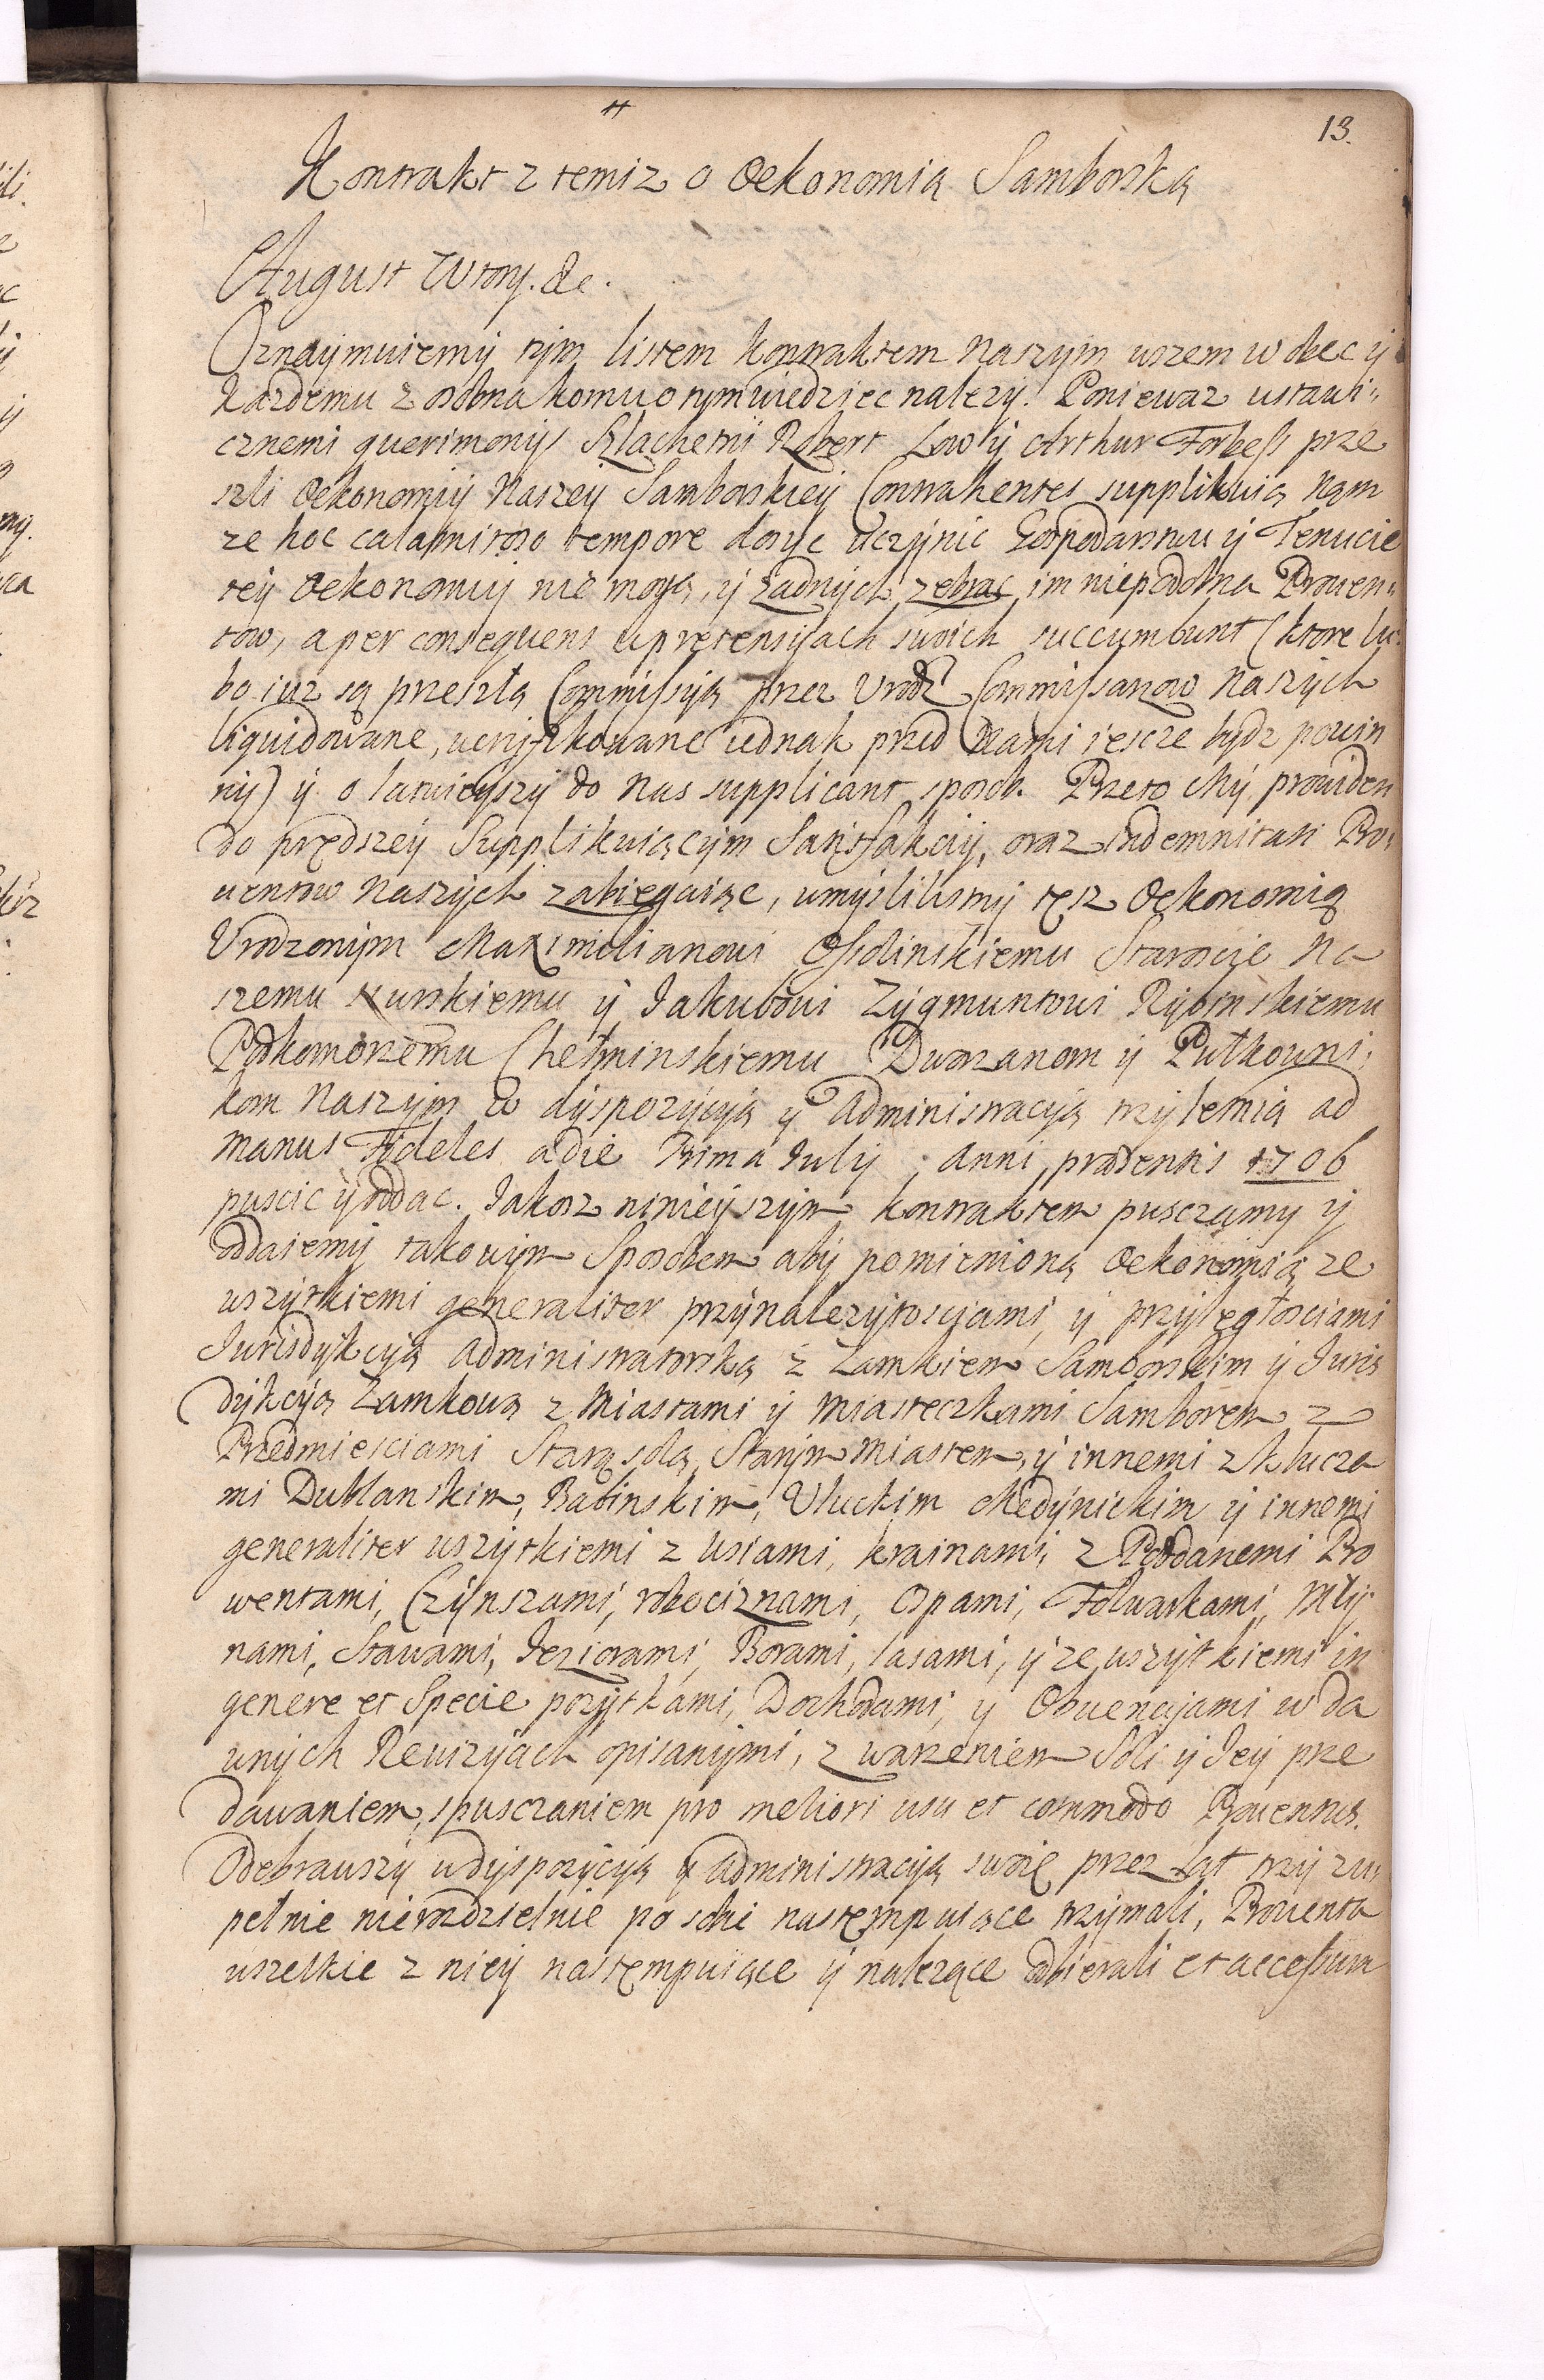 13.
Kontrakt z temiz o Oekonomią Samborską
August Wtory. &c.
Oznaymuiemy tym listem kontraktem Naszym wszem w obec y
każdemu z osobna komu o tym wiedziec nalezy. Poniewaz ustawi„
cznemi querimonys Szlachetni Robert Low y Arthur Forbess prze
szli Oekonomiy Naszey Samborskiey Contrahentes supplikuią Nam
ze hoc calamitoso tempore dosyc uczynic Gospodarstwu y Tenucie
tey Oekonomiy nie mogą, y żadnych zebrac im niepodobna Prowen„
tow, a per consequens w pretensyach swoich succumbunt (ktore lu
bo iuz są przeszłą Commissyą przez Urodz Commissarzow Naszych
liquidowane, weryfikowane iednak przed Nami ieszcze bydz powin
ny) y o łatwieyszy do Nas supplicant sposob. Przeto My providen
do prędszey Supplikuiącym Satisfakciy, oraz indemnitati Pro„
wentow Naszych zabiegaiąc, umyslilismy tęsz Oekonomią
Urodzonym Maximilianowi Ossolinskiemu Staroscie Na
szemu Nurskiemu y Jakubowi Zygmuntowi Rybinskiemu
Podkomorzemu Chełminskiemu Dworzanom y Pułkowni„
kom Naszym w dyspozycyą y Administracyą trzyletnią ad
manus Fideles a die Prima July Anni praesentis 1706
puscic y oddac. Jakosz ninieyszym kontraktem pusczamy y
oddaiemy takowym Sposobem aby pomienioną Oekonomią ze
wszytkiemi generaliter przynalezytoscjami, y przyległosciami
Jurisdykcyą Administratorską z Zamkiem Samborskim y Juris
dykcyą Zamkową z Miastami y Miasteczkami Samborem z
Przedmiesciami Starąsolą, Starym Miastem, y innemi z klucza
mi Dublanskim, Babinskim, Uluckim Medynickim y innemi
generaliter wszytkiemi z Wsiami, krainami, z Poddanemi Pro
wentami, Czynszami, robociznami, Ospami, Folwarkami, Mły
nami, Stawami, Jeziorami, Borami, lasami, y ze wszytkiemi in
genere et Specie pozytkami, Dochodami, y Obwencyjami w da
wnych Rewizyach opisanymi, z warzeniem Soli y Jey prze
dawaniem, spusczaniem pro meliori usu et commodo Prowentus.
Odebrawszy w dyspozycyą y Administracyą swoię przez lat trzy zu„
pełnie nierozdzielnie po sobie nastempuiące trzymali, Prowenta
wszelkie z niey nastempuiące y nalezące odbierali et accessum